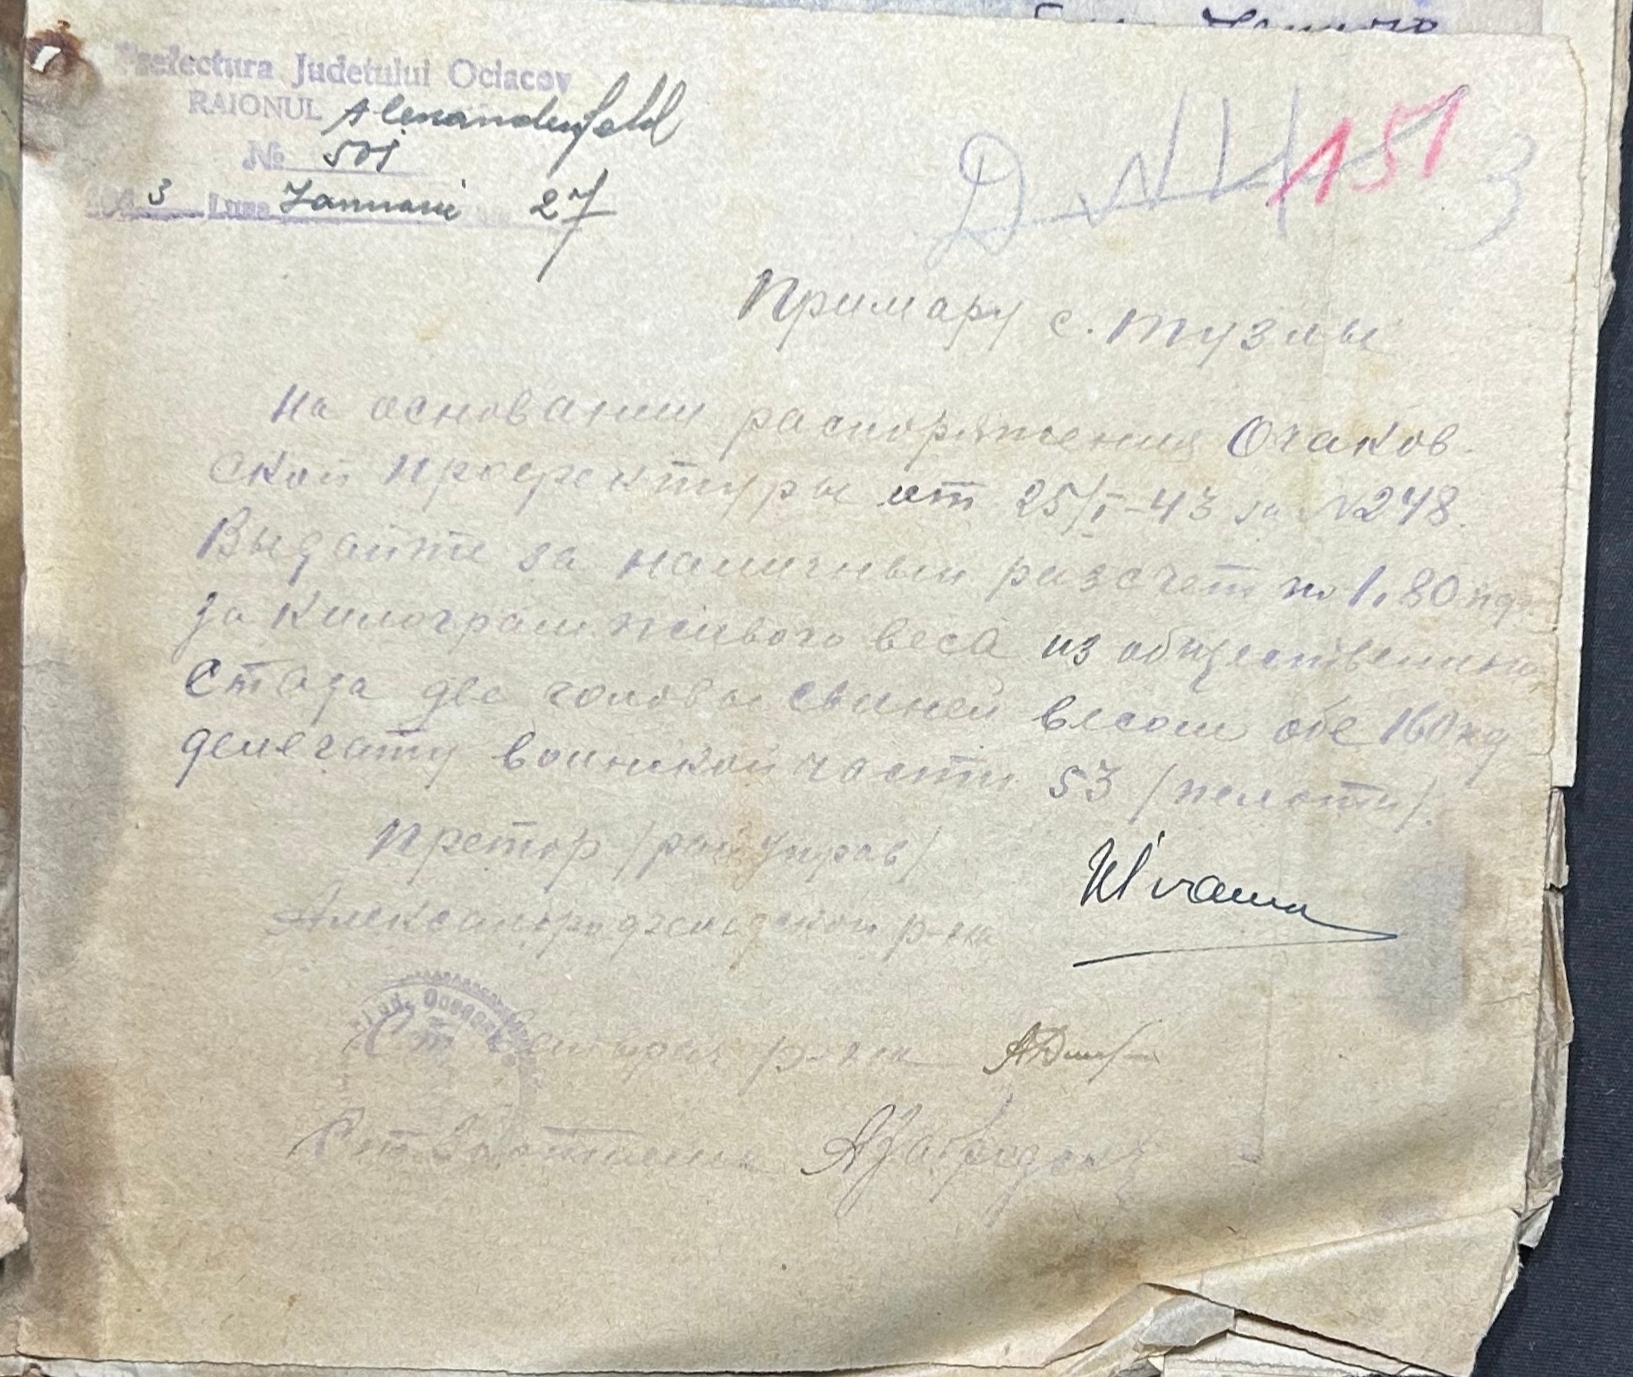 Prefectura Judetului Ociacov
RAIONUL Alexanderfeld
№ 501
3 Luna Ianuarie 27
151
3
Примару с. Тузлы
На основании распоряжения Очаков-
ской Префектуры от 25/I-43 за №248.
Выдайте за наличный разсчет по 1,80
за килограм живого веса из общественного
стада две головы свиней весом обе 160 кг
делегату воинской части 53
Претор /райуправ/
Александрфельдской р-на
Jud. Oceacov
р-на